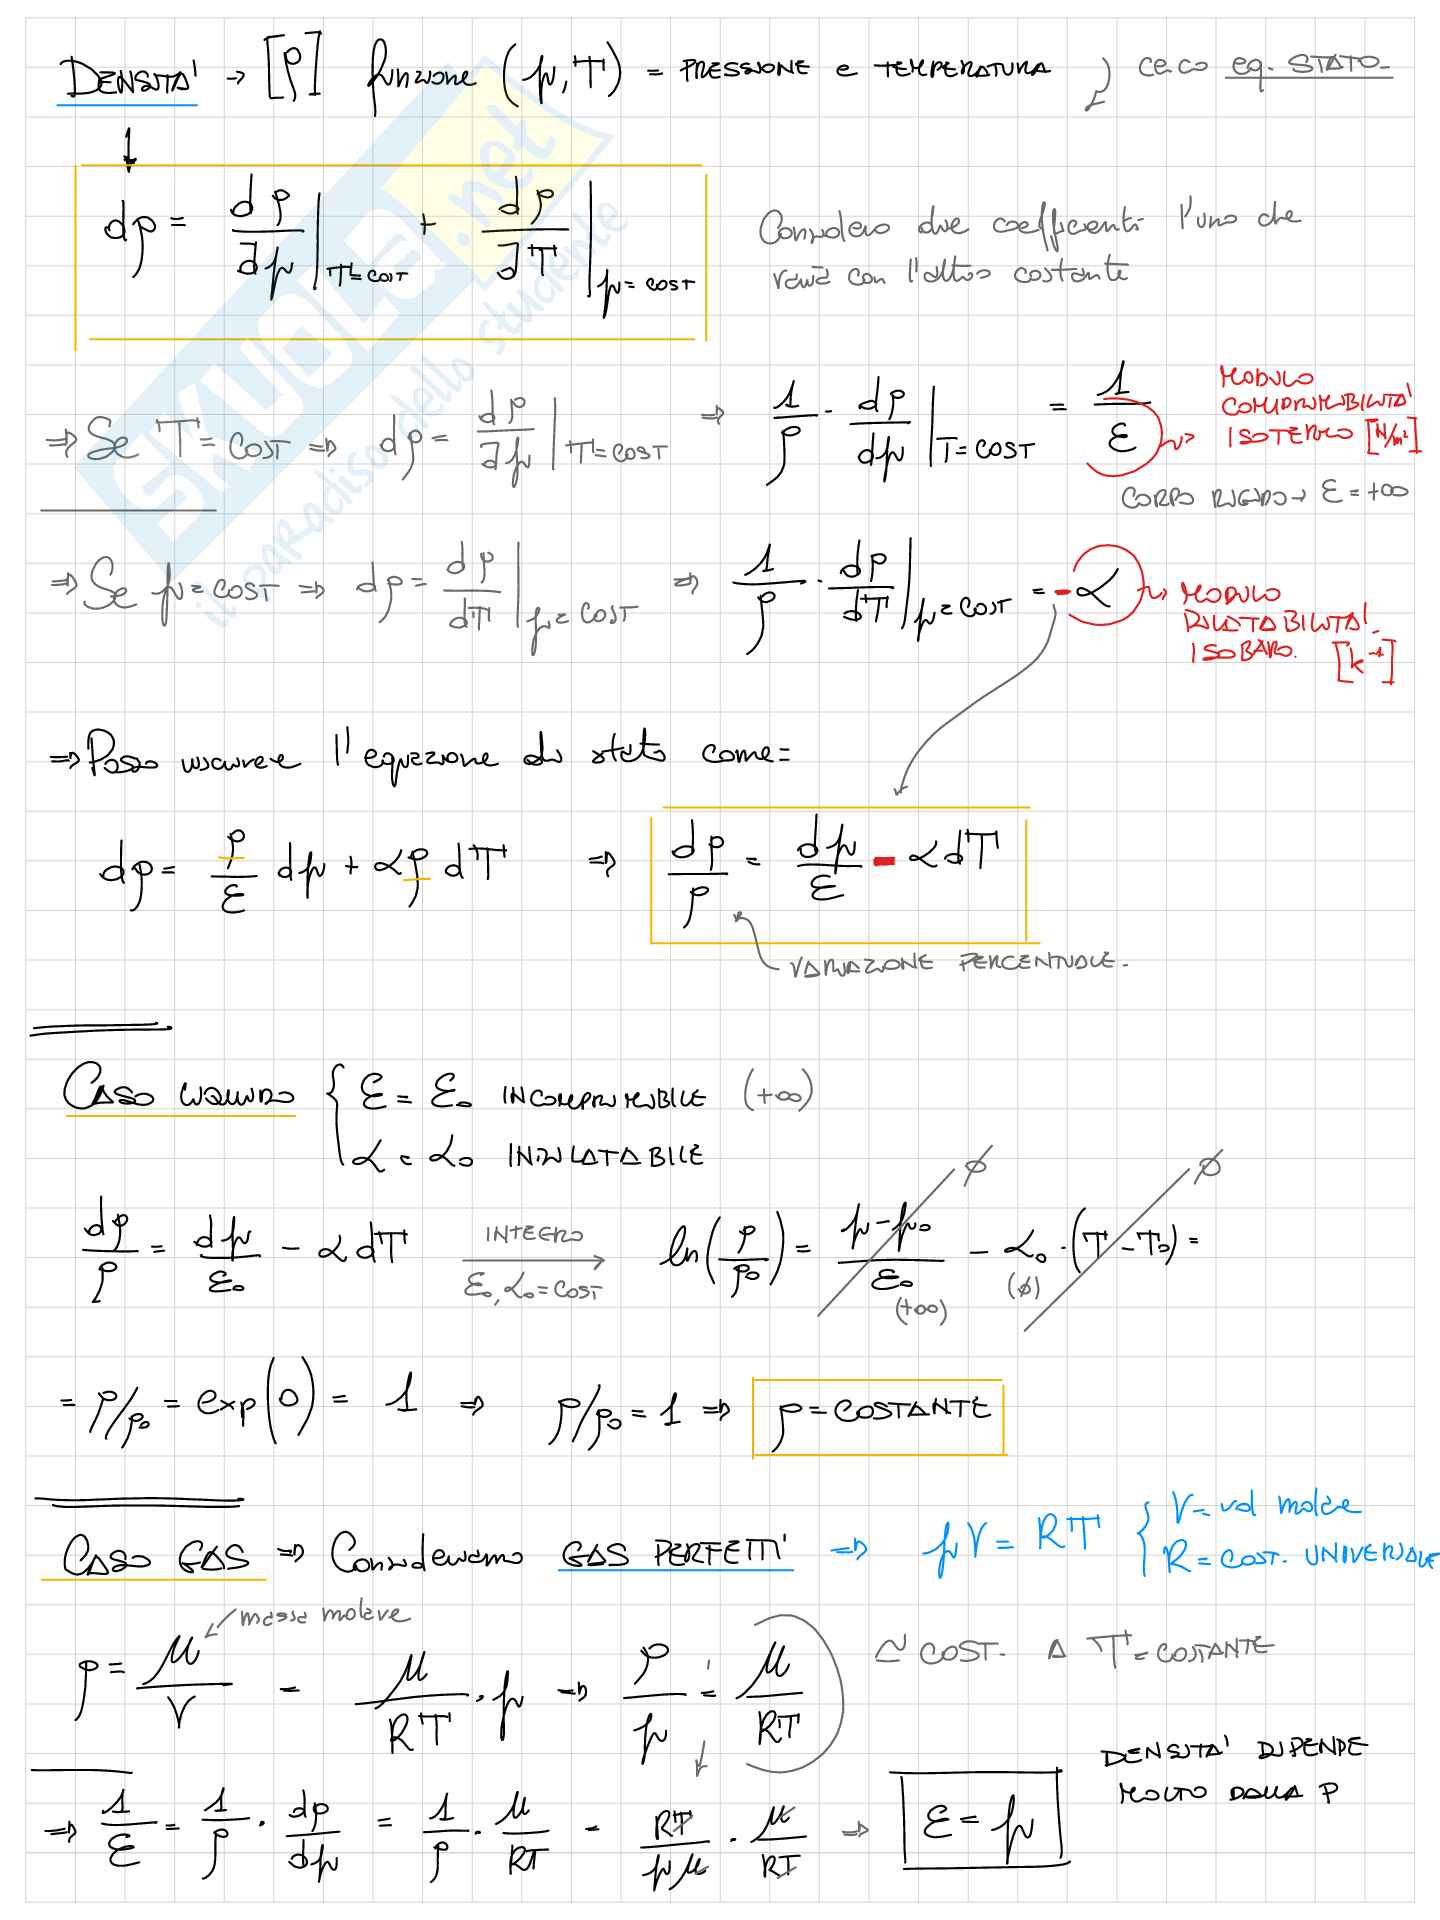 DENSITA' → [ρ] funzione (p, T) = PRESSIONE e TEMPERATURA ) cerco eq. STATO.
dρ = dρ/∂p |T=COST + dρ/∂T |p=COST
Considero due coefficienti l'uno che
varia con l'altro costante
⇒ Se T = COST ⇒ dρ = dρ/∂p |T=COST ⇒ 1/ρ · dρ/dp |T=COST = 1/ε
MODULO
COMPRIMIBILITA'
ISOTERMO [N/m²]
CORPO RIGIDO → ε = +∞
⇒ Se p = COST ⇒ dρ = dρ/dT |p=COST ⇒ 1/ρ · dρ/dT |p=COST = -α
MODULO
DILATABILITA'
ISOBARO. [k⁻¹]
⇒ Posso riscrivere l'equazione di stato come =
dρ = ρ/ε dp + αρ dT ⇒ dρ/ρ = dp/ε - αdT
VARIAZIONE PERCENTUALE.
CASO LIQUIDO { ε = ε₀ INCOMPRIMIBILE (+∞)
α = α₀ INDILATABILE
dρ/ρ = dp/ε₀ - αdT INTEGRO ε₀, α₀ = COST → ln(ρ/ρ₀) = p-p₀/ε₀ (+∞) ∅ - α₀ (∅) · (T - T₀) ∅ =
= ρ/ρ₀ = exp(0) = 1 ⇒ ρ/ρ₀ = 1 ⇒ ρ = COSTANTE
CASO GAS ⇒ Consideriamo GAS PERFETTI ⇒ pV = RT { V = vol molare
R = COST. UNIVERSALE
massa molare
ρ = μ/V = μ/RT · p → ρ/p = μ/RT ≃ COST. A T = COSTANTE
DENSITA' DIPENDE
MOLTO DALLA P
⇒ 1/ε = 1/ρ · dρ/dp = 1/ρ · μ/RT = RT/pμ · μ/RT ⇒ ε = p
SKUOLA.net
il paradiso dello studente